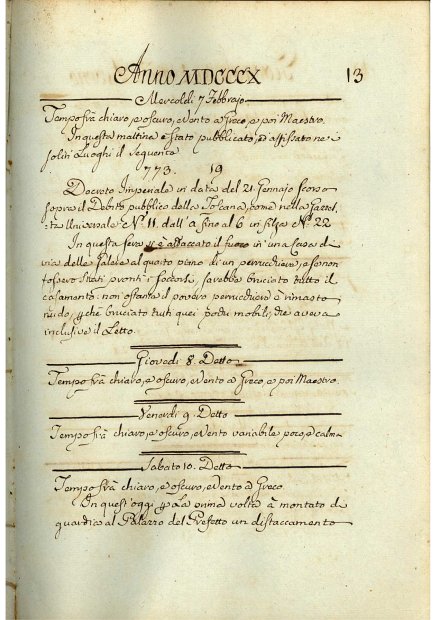 Anno MDCCCX 13
Mercoldi 7 Febbrajo
Tempo frà chiaro, e oscuro, e Vento a Greco, e poi Maestro.
In questa mattina è stato pubblicato, e affissato ne
soliti Luoghi il seguente
773. 19
Decreto Imperiale in data del 21 Gennajo scorso
sopra il Debito pubblico della Toscana, come nella Gazzet-
ta Universale N.º 11. dall' a fino al 6 in filza N.º 22
In questa sera si è attaccato il fuoco in una Casa di
via delle al quarto piano di un perrucchiere, e se non
fossero stati pronti i soccorsi, sarebbe bruciato tutto il
casamento: non ostante il povero perrucchiere è rimasto
nudo, bruciato tutti quei pochi mobili, che aveva
inclusive il Letto.
Giovedi 8. Detto
Tempo frà chiaro, e oscuro, e Vento a Greco, e poi Maestro.
Venerdi 9. Detto
Tempo frà chiaro, e oscuro, e Vento variabile poco, e calma
Sabato 10. Detto
Tempo frà chiaro, e oscuro, e Vento a Greco.
In quest'oggi la prima volta à montato di
guardia al Palazzo del Prefetto un distaccamento